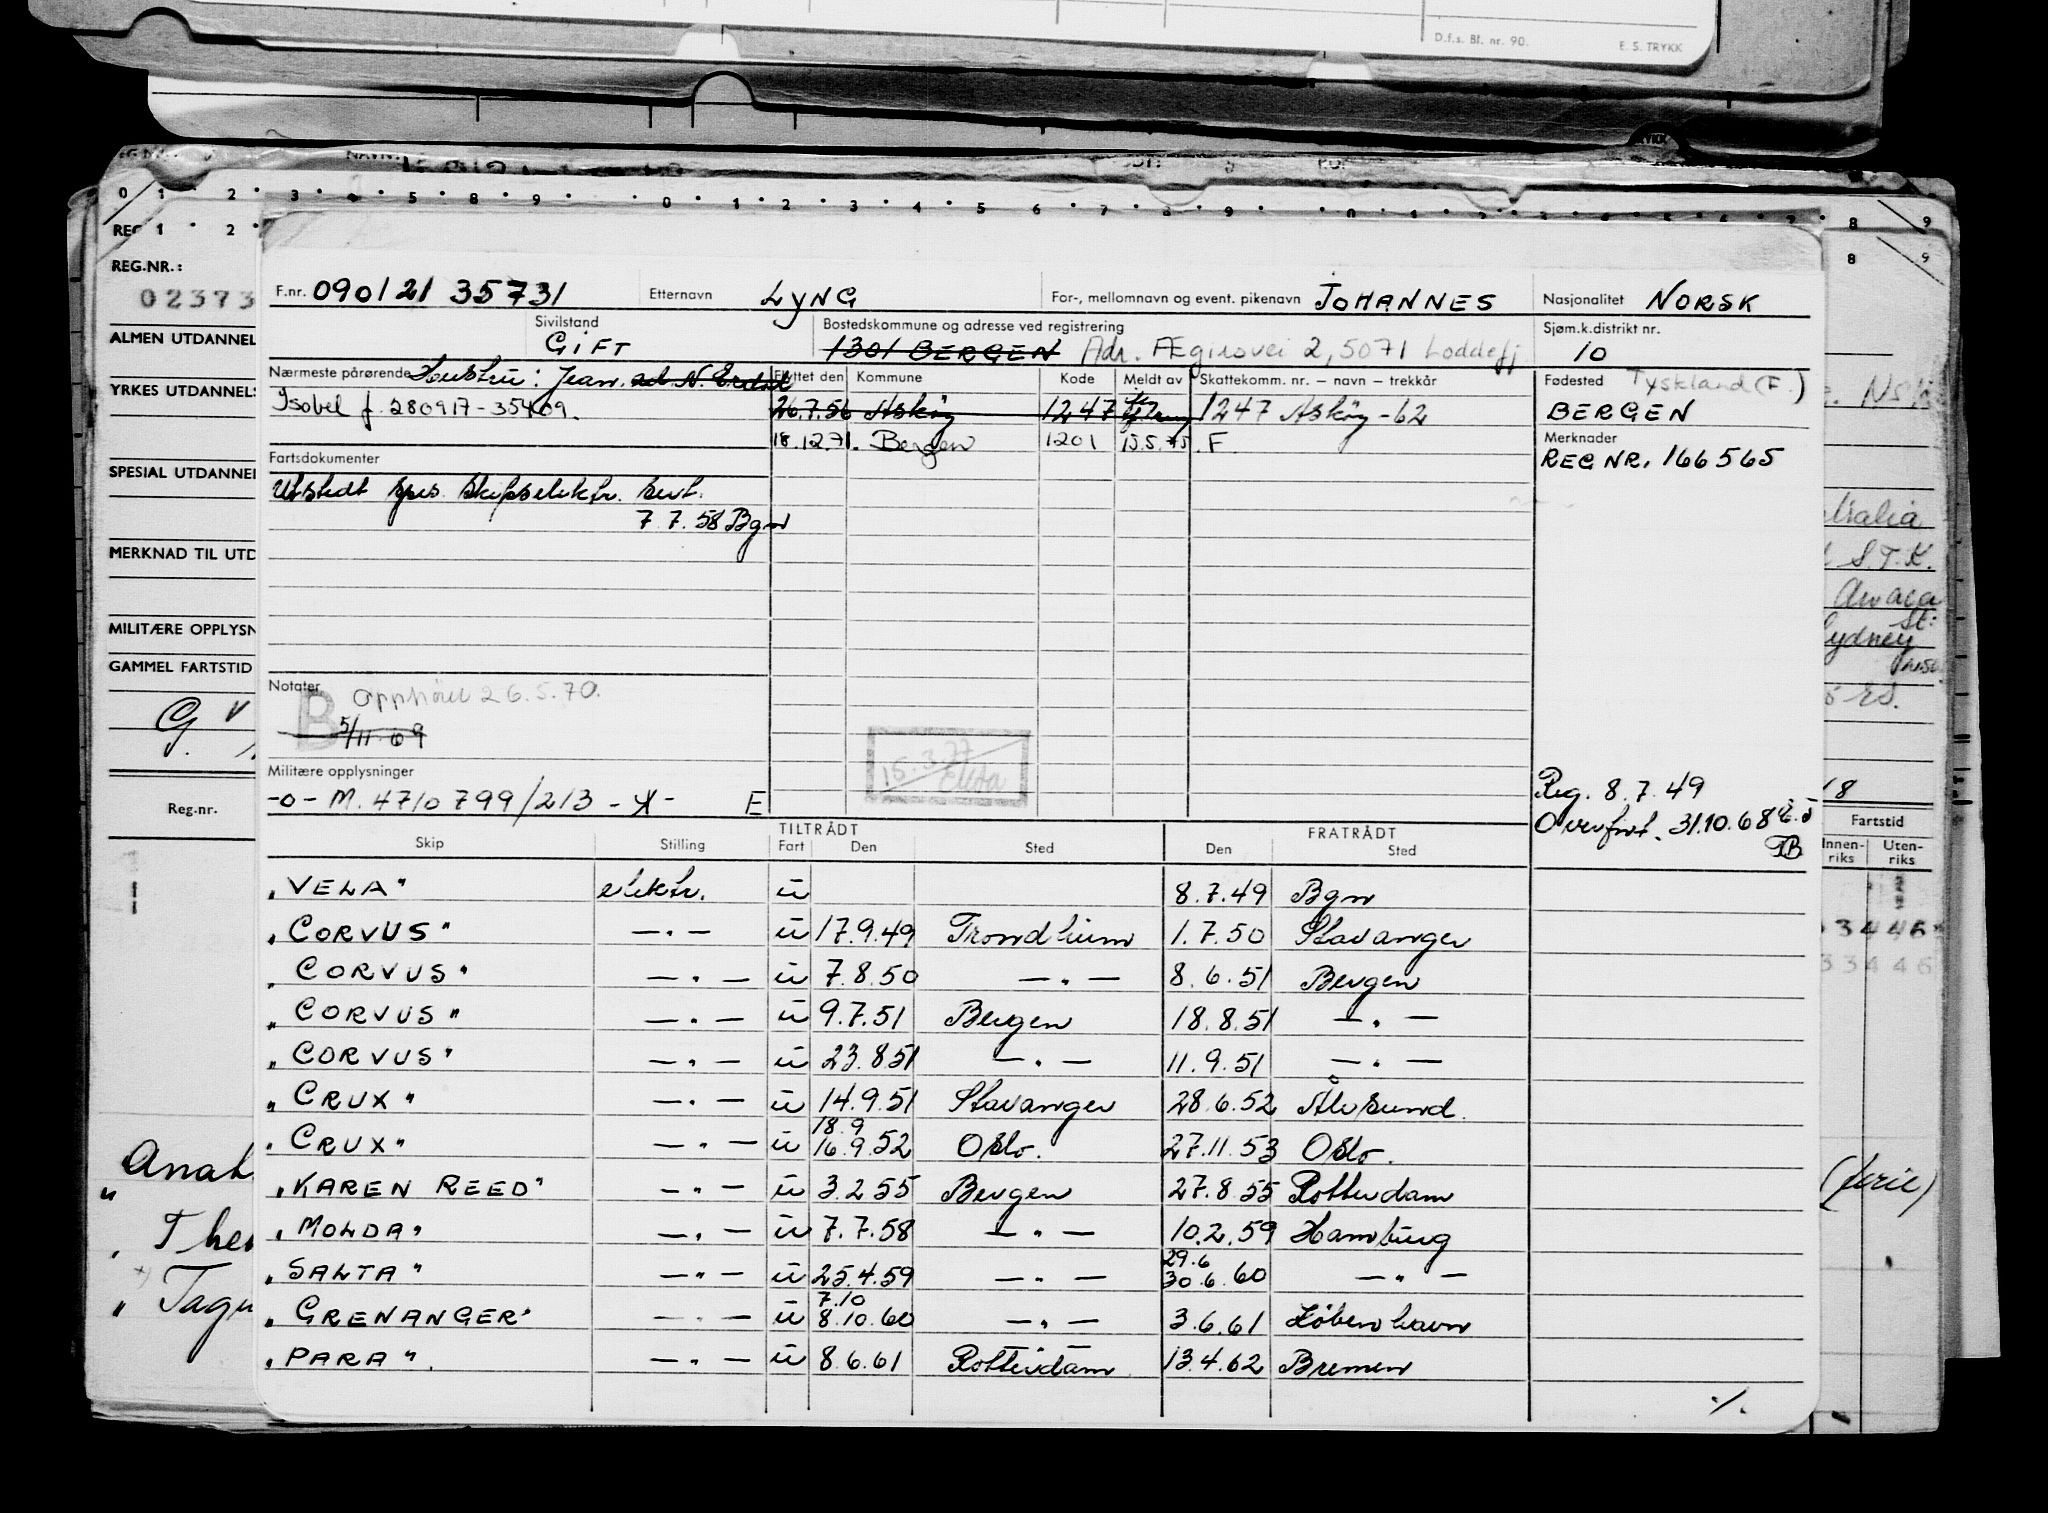 D.f.s. Bl. nr. 90. E. S. TRYKK
REG.NR.:
02373
ALMEN UTDANNEL
YRKES UTDANNELS
SPESIAL UTDANNEL
MERKNAD TIL UTD
MILITÆRE OPPLYSN
GAMMEL FARTSTID
Reg.nr.
F.nr. 090121 35731 Etternavn LYNG For-, mellomnavn og event. pikenavn JOHANNES Nasjonalitet NORSK
Sivilstand GIFT Bostedskommune og adresse ved registrering 1301 BERGEN Adr. Ægirsvei 2, 5071 Loddefj. Sjøm.k.distrikt nr. 10
Nærmeste pårørende Hustru: Jean
Isobel f. 280917-35409.
Flyttet den Kommune Kode Meldt av Skattekomm. nr. – navn – trekkår
26.7.56 Askøy 1247 1247 Askøy - 62
18.12.71. Bergen 1201 15.5.75. F.
Fødested Tyskland (F.)
BERGEN
Merknader
REG NR. 166565
Fartsdokumenter
Utstedt spes. skipselektr. sert.
7.7.58 Bgn
Notater
B Opphört 26.5.70.
5/11.69
15.3.77
Militære opplysninger
-o- M. 4710799/213 - X - E
Reg. 8.7.49
Overført. 31.10.68
TB
Skip Stilling TILTRÅDT Fart Den Sted FRATRÅDT Den Sted
"VELA" elektr. u 8.7.49 Bgn
"CORVUS" —"— u 17.9.49 Trondheim 1.7.50 Stavanger
"CORVUS" —"— u 7.8.50 —"— 8.6.51 Bergen
"CORVUS" —"— u 9.7.51 Bergen 18.8.51 —"—
"CORVUS" —"— u 23.8.51 —"— 11.9.51 —"—
"CRUX" —"— u 14.9.51 Stavanger 28.6.52 Ålesund.
18.9
"CRUX" —"— u 16.9.52 Oslo. 27.11.53 Oslo.
"KAREN REED" —"— u 3.2.55 Bergen 27.8.55 Rotterdam
"MOLDA" —"— u 7.7.58 —"— 10.2.59 Hamburg
29.6
"SALTA" —"— u 25.4.59 —"— 30.6.60 —"—
7.10
"GRENANGER" —"— u 8.10.60 —"— 3.6.61 København
"PARA" —"— u 8.6.61 Rotterdam 13.4.62 Bremen
./.
S.T.K.
Sydney
18
Fartstid
Innen-riks Uten-riks
33446
(ferie)